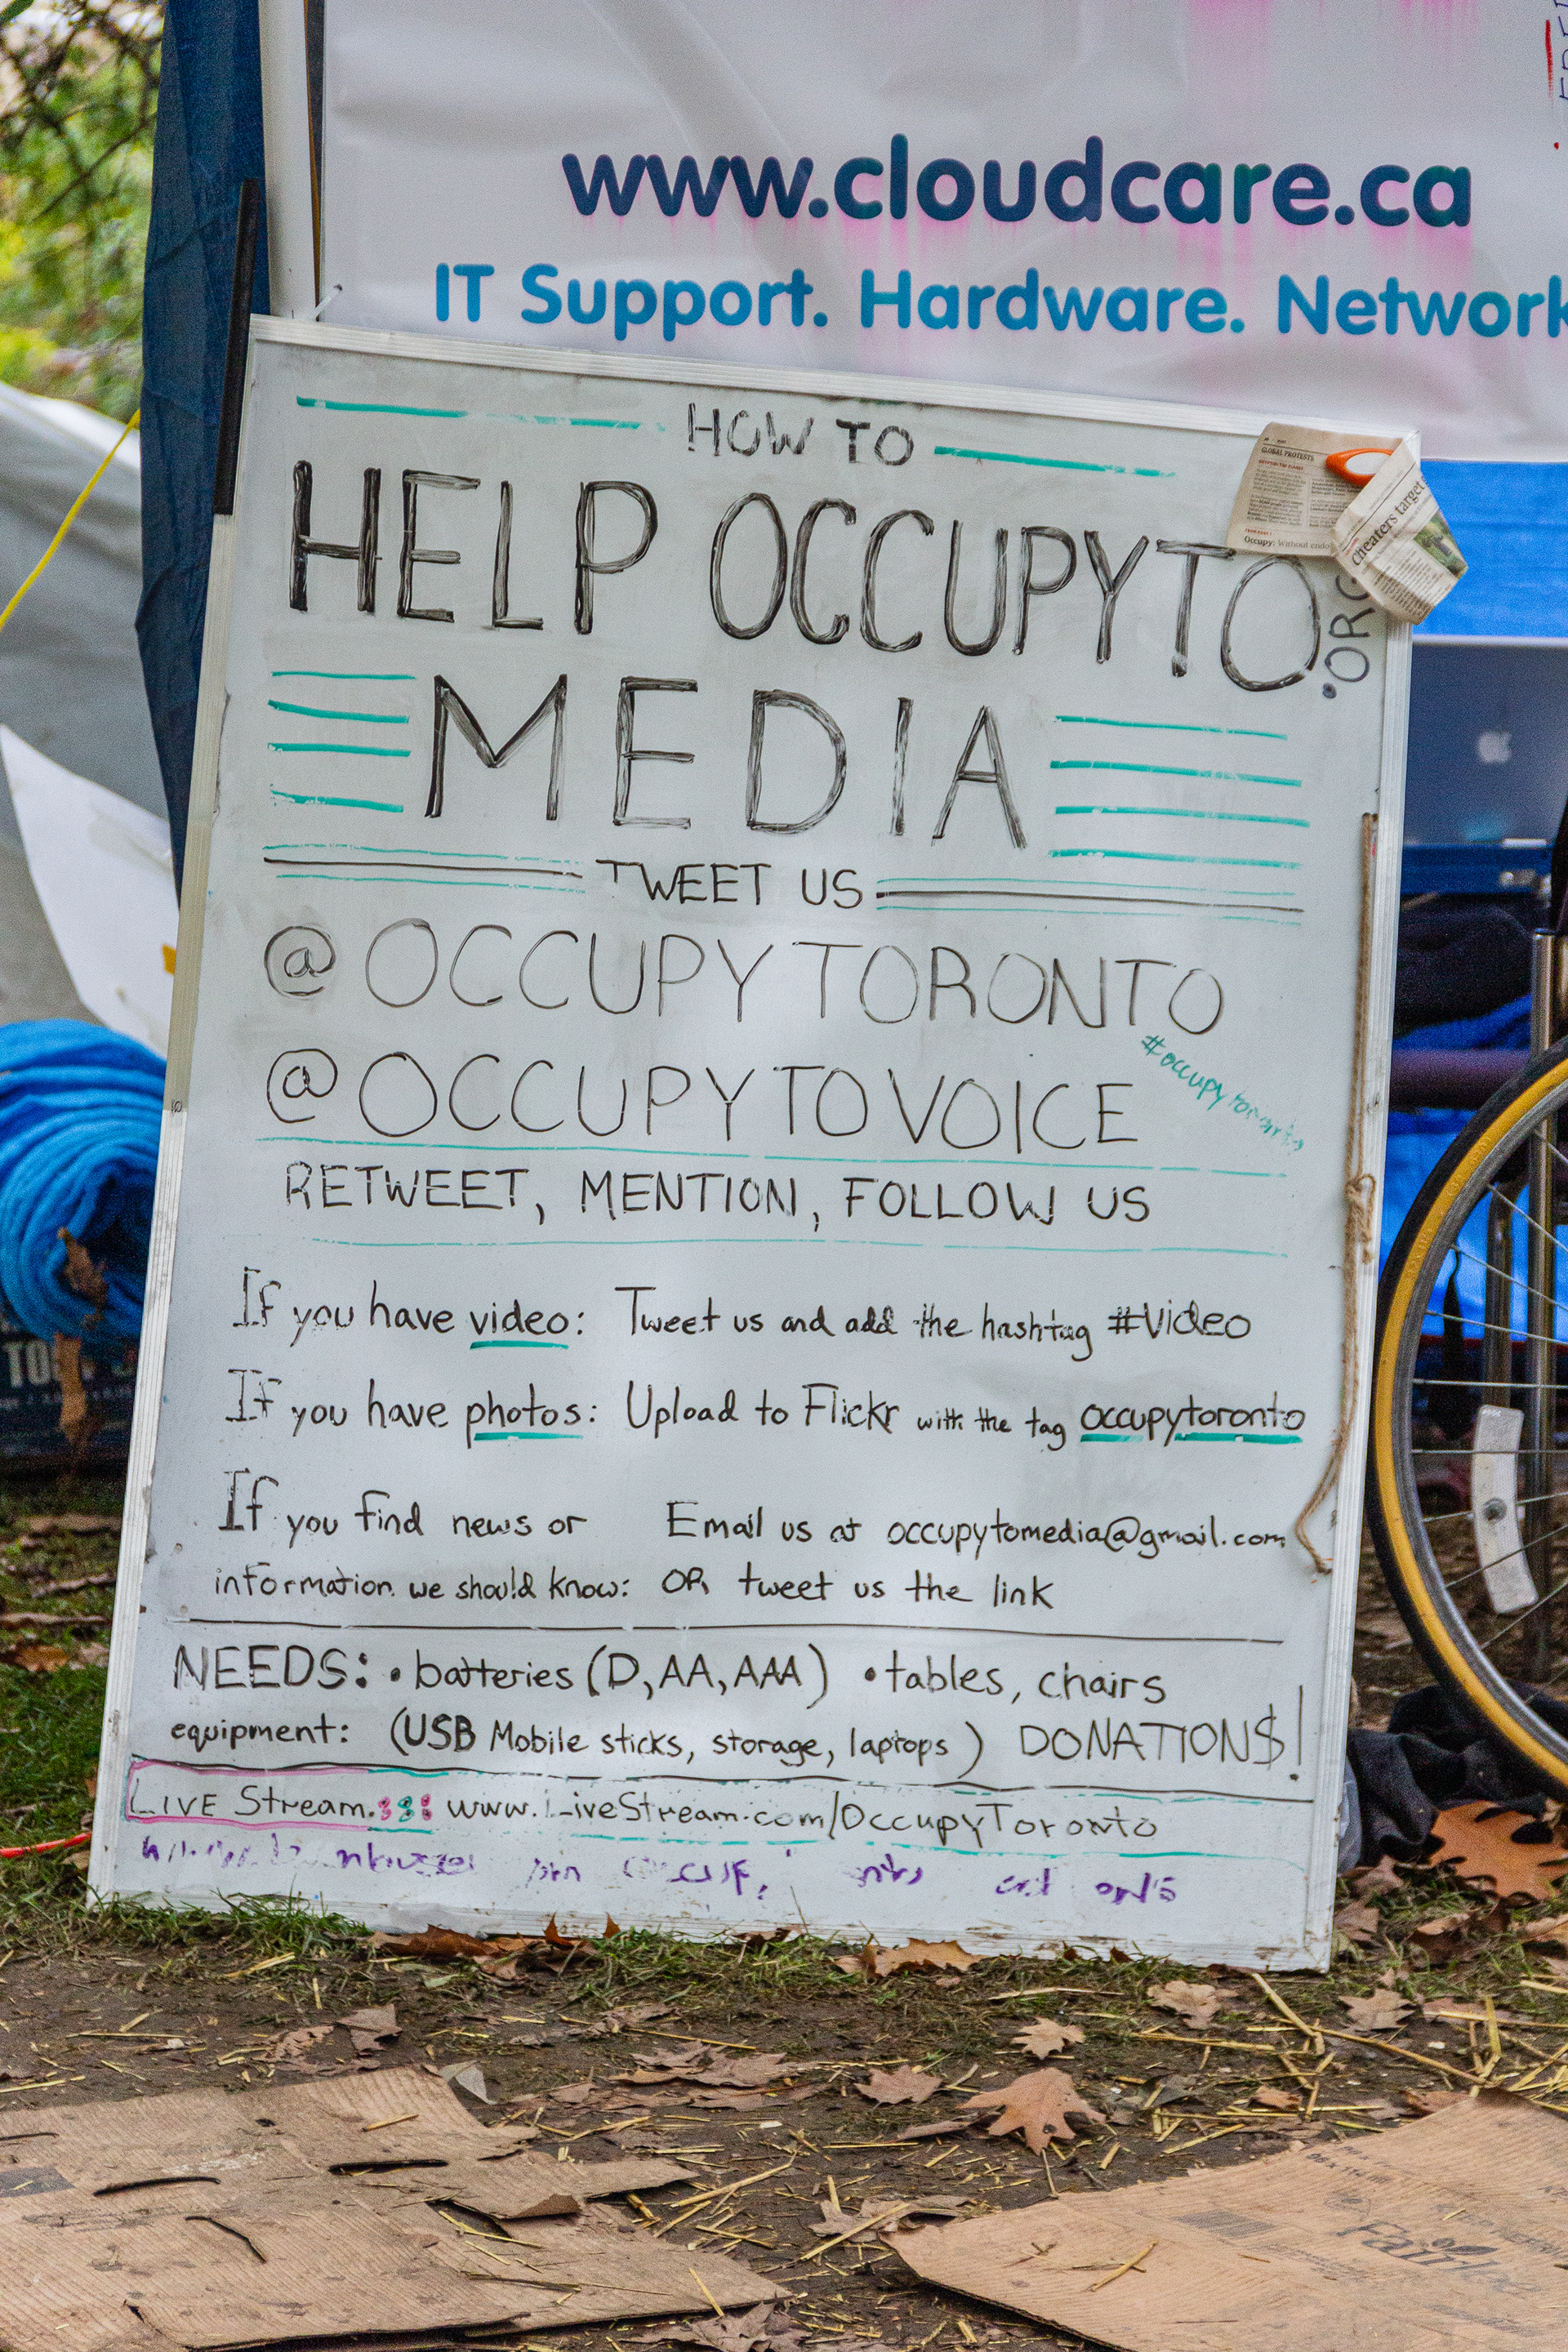 www.cloudcare.ca
IT Support. Hardware. Network
HOW TO
HELP OCCUPYTO
.ORG
MEDIA
GLOBAL PROTESTS
Occupy: Without
cheaters target
TWEET US
@OCCUPYTORONTO
@OCCUPYTOVOICE
#occupytoronto
RETWEET, MENTION, FOLLOW US
If you have video: Tweet us and add the hashtag #Video
If you have photos: Upload to Flickr with the tag occupytoronto
If you find news or Email us at occupytomedia@gmail.com
information we should know: OR tweet us the link
NEEDS: • batteries (D, AA, AAA) • tables, chairs
equipment: (USB Mobile sticks, storage, laptops) DONATION$!
LIVE Stream: www.LiveStream.com/OccupyToronto